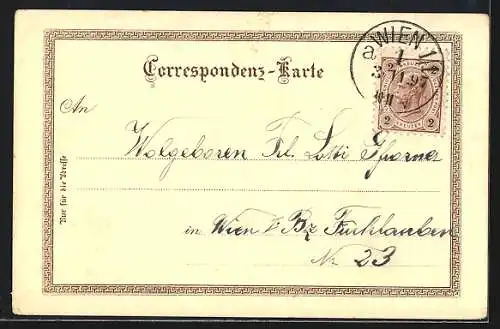 a WIEN 1/1
Correspondenz-Karte
2 2
An
Wolgeboren Frl. Lotti
in Wien I Bz Tuchlauben
Nr 23
Nur für die Adresse